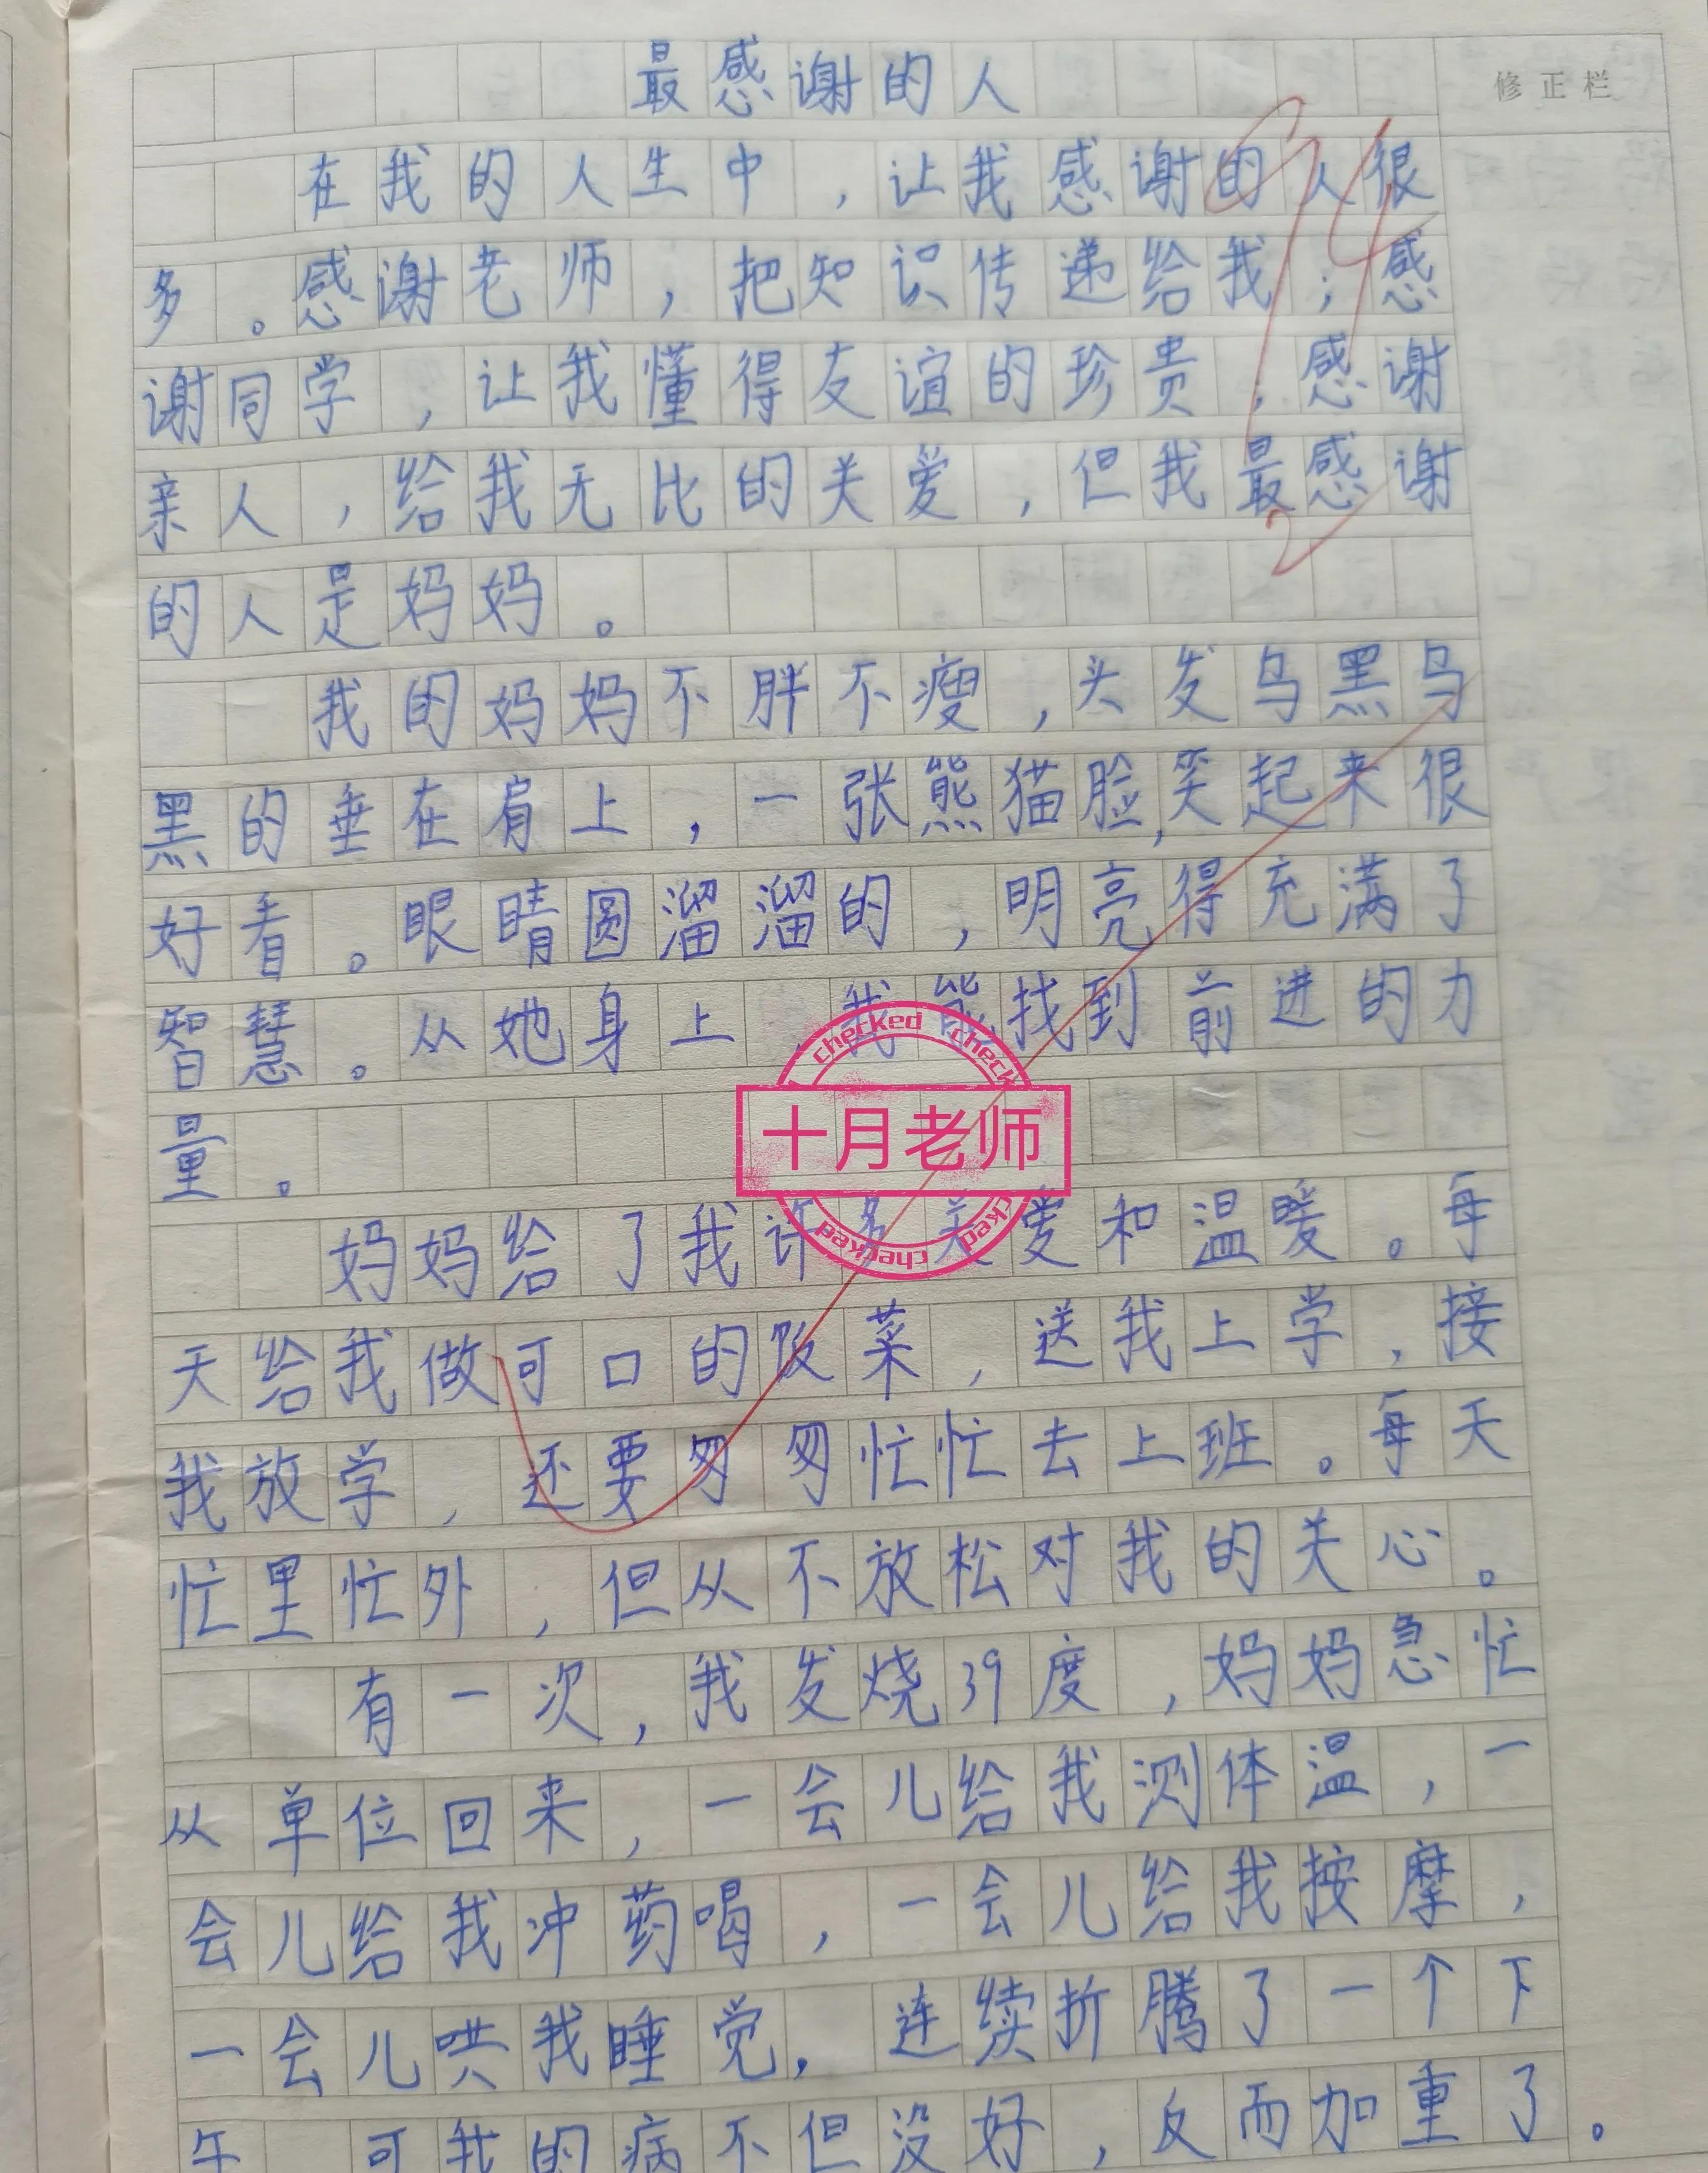 最感谢的人
修正栏
在我的人生中,让我感谢的人很
多。感谢老师,把知识传递给我;感
谢同学,让我懂得友谊的珍贵;感谢
亲人,给我无比的关爱,但我最感谢
的人是妈妈。
我的妈妈不胖不瘦,头发乌黑乌
黑的垂在肩上,一张熊猫脸,笑起来很
好看。眼睛圆溜溜的,明亮得充满了
智慧。从她身上,我能找到前进的力
量。
checked check
十月老师
cked checked
妈妈给了我许多关爱和温暖。每
天给我做可口的饭菜,送我上学,接
我放学,还要匆匆忙忙去上班。每天
忙里忙外,但从不放松对我的关心。
有一次,我发烧39度,妈妈急忙
从单位回来,一会儿给我测体温,一
会儿给我冲药喝,一会儿给我按摩,
一会儿哄我睡觉,连续折腾了一个下
午 可我的病不但没好,反而加重了。